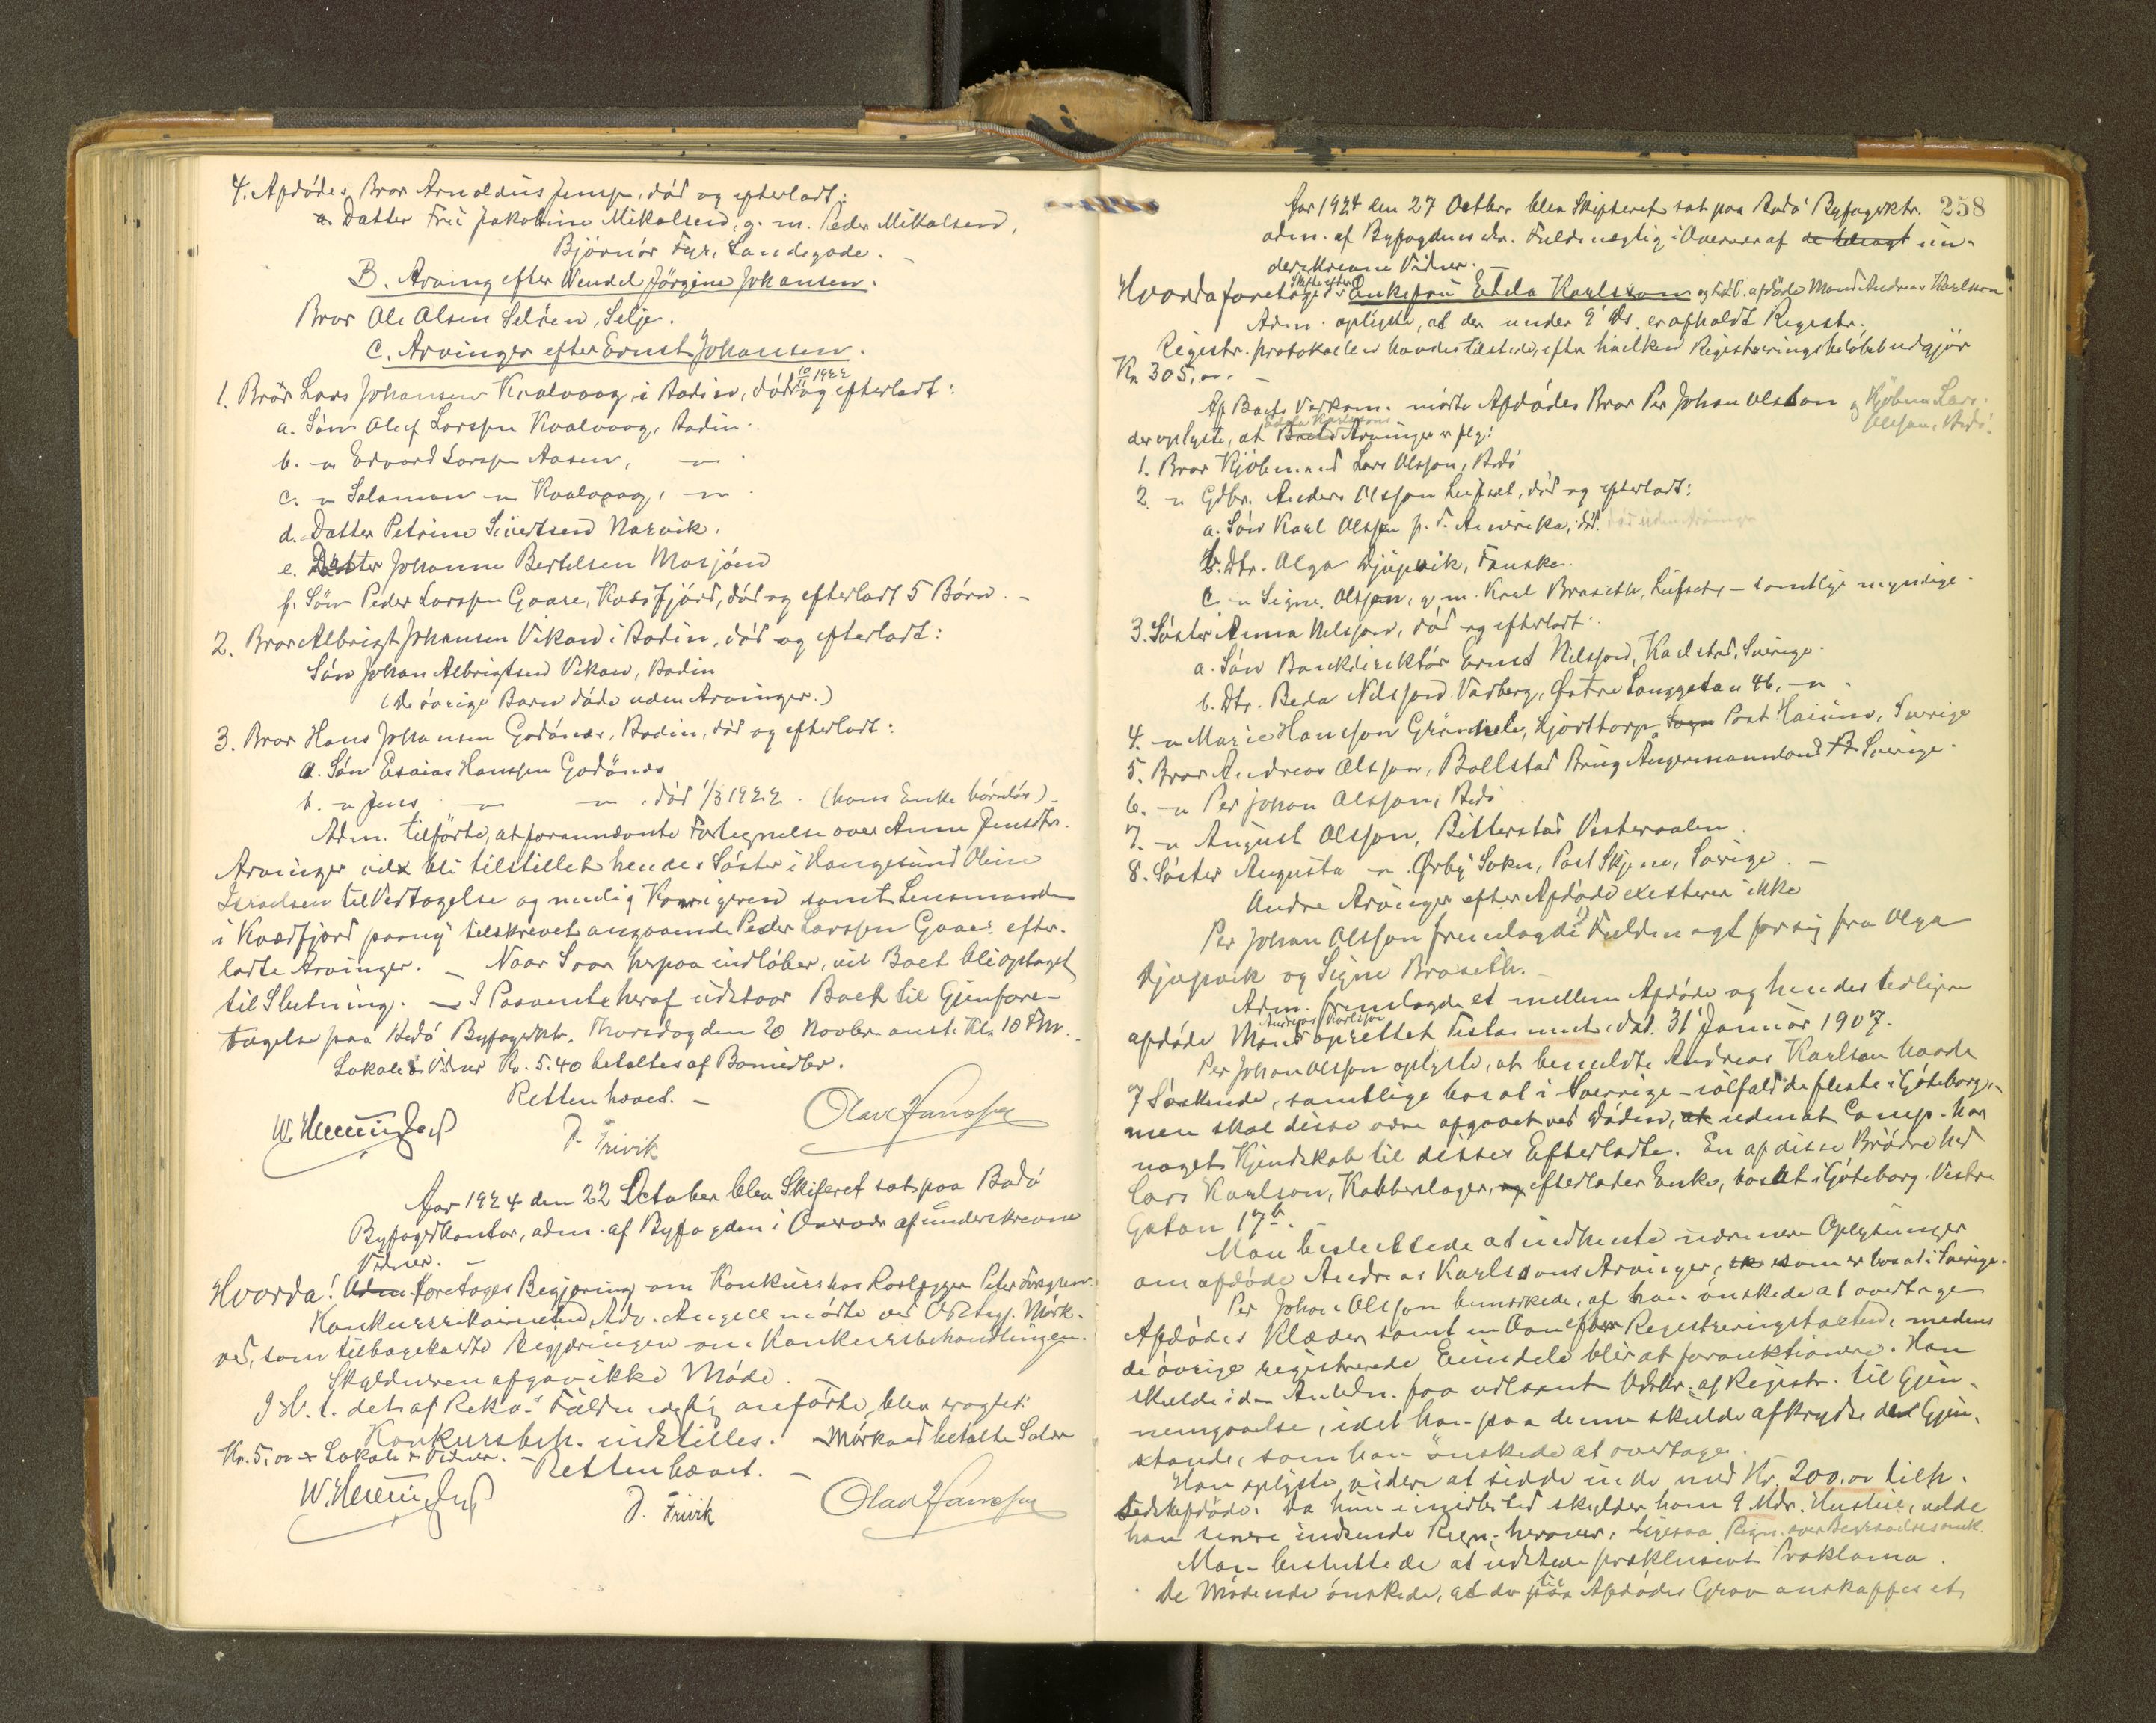 4. Afdødes Bror Arnoldus Jensen, død og efterladt:
a. Datter Fru Jakobine Mikalsen, g. m. Peder Mikalsen,
Bjørnør Fyr, Landegode.
B. Arving efter Wendel Jørgine Johansen.
Bror Ole Olsen Seløen, Selje.
C. Arvinger efter Ernst Johansen.
1. Bror Lars Johansen Kvalvaag i Bodin, død 10/11 1922 og efterladt:
a. Søn Oluf Larssen Kvalvaag, Bodin.
b. -"- Edvard Larssen Aasen, -"-
c. -"- Salamon -"- Kvalvaag, -"-
d. Datter Petrine Sivertsen Narvik.
e. Datter Johanne Bertelsen Mosjøen
f. Søn Peder Larssen Gaare, Kvæfjord, død og efterladt 5 Børn. -
2. Bror Albrigt Johansen Vikan i Bodin, død og efterladt:
Søn Johan Albrigtsen Vikan, Bodin
(De øvrige Barn døde uden Arvinger.)
3. Bror Hans Johansen Godønes, Bodin, død og efterladt:
a. Søn Esaias Hanssen Godønes
b. -"- Jens -"- -"- , død 1/3 1922. (hans Enke barnløs)
Adm. tilførte, at forannævnte Fortegnelse over Anne Jensdtr.
Arvinger vil bli tilstillet hendes Søster i Haugesund Oline
Israelsen til Vedtagelse og mulig Korrigeren samt Lensmanden
i Kvædfjord paany tilskrevet angaaende Peder Larssen Gaares efter-
ladte Arvinger. - Naar Svar herpaa indløber, vil Boet bli optaget
til Slutning. - I Paavente heraf udstaar Boet til Gjenfore-
tagelse paa Bodø Byfogdktr. Thorsdag den 20 Novbr. anst. Kl. 10 Fm.
Lokale & Vidner Kr. 5.40 betaltes af Bomidler.
Retten hævet. -
J. Trivik
Olav Hanssen
Aar 1924 den 22 October blev Skifteret sat paa Bodø
Byfogdkontor, adm. af Byfogden i Overvær af underskrevne
Vidner. -
Hvorda! Adm. foretoges Begjæring om Konkurs hos
Konkursrekvirenten Adv. Angell mødte ved Mørk-
ved, som tilbagekaldte Begjæringen om Konkursbehandlingen.
Skyldneren afgav ikke Møde.
I H. t. det af Rekv.s Fuldmægtig anførte, blev eragtet:
Konkursbeh. indstilles. - Mørkved betalte Salær
Kr. 5,00 & Lokale & Vidner. - Retten hævet. -
J. Trivik
Olav Hanssen
258
Aar 1924 den 27 Octbr. blev Skifteret sat paa Bodø Byfogdktr.
adm. af Byfogdens edsv. Fuldmægtig i Overvær af de tilkaldt un-
derskrevne Vidner. -
Hvorda foretoges Skifte efter Enkefru Edda Karlsson og tidl. afdøde Mand Andreas Karlsson
Adm. oplyste, at der under 9 ds. er afholdt Registr.
Registr. protokollen havdes tilstede, efter hvilken Registreringsbeløbet udgjør
Kr. 305,00. -
Af Boets Vedkom. mødte Afdødes Bror Per Johan Olsson og Kjøbm. Lars
Olsson, Bodø.
der oplyste, at Boets Edda Karlssons Arvinger er flg:
1. Bror Kjøbmand Lars Olsson, Bodø
2. -"- Gdbr. Anders Olsson Leifset, død og efterladt:
a. Søn Karl Olsson p. t. Amerika, død. død uden Arvinger
b. Dtr. Olga Djupvik, Fauske.
c. -"- Signe Olsson, g. m. Karl Braseth, Leifset, - samtlige myndige.
3. Søster Anna Nilsson, død og efterladt:
a. Søn Bankdirektør Ernst Nilsson, Karlstad, Sverige.
b. Dtr. Beda Nilsson Varberg, Østre Langgatan 46, -"-
4. -"- Marie Hansson Post Sverige
5. Bror Andreas Olsson, Bollstad Brug Angermannland Sverige.
6. -"- Per Johan Olsson, Bodø
7. -"- August Olsson, Bitterstad Vesteraalen.
8. Søster Augusta -"- Ørby Sokn, Post Skjene, Sverige. -
Andre Arvinger efter Afdøde existerer ikke
Per Johan Olsson fremlagde Fuldmagt for sig fra Olga
Djupvik og Signe Braseth. -
Adm. fremlagde et mellem Afdøde og hendes tidligere
afdøde Mand Andreas Karlsson oprettet Testament, dat. 31 Januar 1907.
Per Johan Olsson oplyste, at bemeldte Andreas Karlson havde
7 Søskende, samtlige bosat i Sverige - ialfald de fleste i Gøteborg, -
men skal disse være afgaaet ved Døden, uden at Comp. har
noget Kjendskab til disses Efterladte. En af disse Brødre hed
Lars Karlson, Kobberslager, efterlader Enke, bosat i Gøteborg, Vestre
Gatan 17b.
Man besluttede at indhente nærmere Oplysninger
om afdøde Andreas Karlssons Arvinger, som er bosat i Sverige.
Per Johan Olsson bemerkede, at han ønskede at overtage
Afdødes Klæder samt en Ovn efter Registreringstaxten, medens
de øvrige registrerede Eiendele blir at forauktionere. Han
skulde i d. Anledn. faa udlaant Udskr. af Registr. til Gjen-
nemgaaelse, idet han paa denne skulde afkrydse de Gjen-
stande, som han ønskede at overtage.
Han oplyste videre at sidde inde med Kr. 200,00 tilh.
Afdøde. Da hun imidlertid skylder ham 9 Mdr. Husleie, vilde
han senere indsende Regn. herover, ligesaa Regn. over Begravelsesomk.
Man besluttede at udstede præklusivt Proklama.
De Mødende ønskede, at der til Afdødes Grav anskaffes et